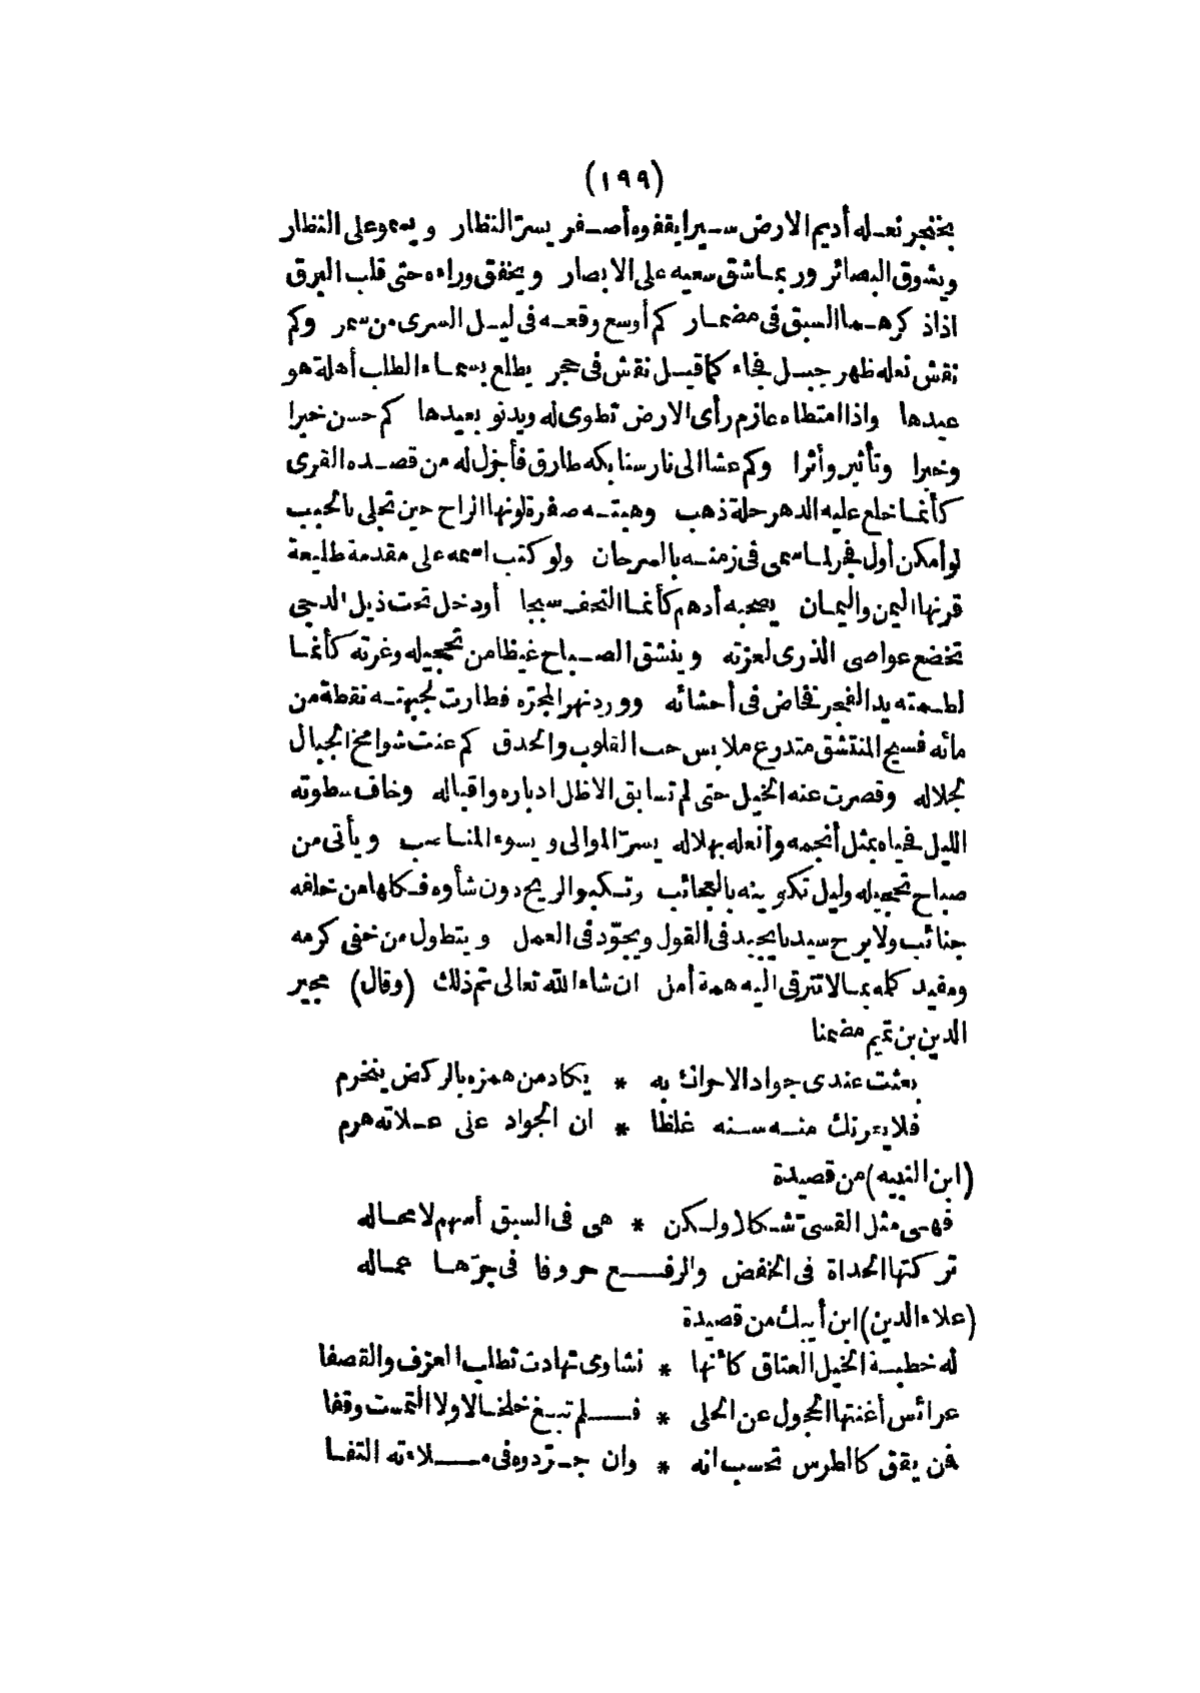 (١٩٩)
بخنجر نعله أديم الارض سيرا يقفوه أصفر يسرّ النظار ويسموعلى النظار
ويشوق البصائر وربما شق سعيه على الابصار ويخفق وراءه حتى قلب البرق
اذا ذكر هما السبق فى مضمار كم أوسع وقعه فى ليل السرى من سمر وكم
نقش نعله ظهر جبل فجاء كما قيل نقش فى حجر يطلع بسماء الطلب أهلة هو
عيدها واذا امتطاه عازم رأى الارض تطوى له ويدنو بعيدها كم حسن خبرا
وخبرا وتأثير وأثرا وكم عشا الى نار سنابكه طارق فأجزل له من قصده القرى
كأنما خلع عليه الدهر حلة ذهب وهبته صفرة لونها الراح حين تجلى بالحبب
لو أمكن أول فجر لما سمى فى زمنه بالسرحان ولو كتب اسمه على مقدمة طليعة
قرنها اليمن واليمان يصحبه أدهم كأنما التحف سبجا أو دخل تحت ذيل الدجى
تخضع عواصى الذرى لعزته وينشق الصباح غيظا من تحجيله وغرته كأنما
لطمته يد الفجر فخاض فى أحشائه وورد نهر المجرّه فطارت لجبهته نقطة من
مائه فسيح المنتشق متدرع ملابس حب القلوب والحدق كم عنت شوامخ الجبال
لجلاله وقصرت عنه الخيل حتى لم تسابق الاظل ادباره واقباله وخاف سطوته
الليل فحياه بمثل أنجمه وأنعله بهلاله يسرّ الموالى ويسوء المناصب ويأتى من
صباح تحجيله وليل تكوينه بالعجائب وتكبو الريح دون شأوه فكلها من خلفه
جنائب ولا برح سيدنا يجيد فى القول ويجوّد فى العمل ويتطول من خفى كرمه
ومفيد كلمه بما لا تترقى اليه همة أمل ان شاء الله تعالى تم ذلك (وقال) مجير
الدين بن تميم مضمنا
بعثت عندى جواد الاحراك به * يكاد من همزه بالركض ينخرم
فلا يغرنك منه سنه غلظا * ان الجواد على علاته هرم
(ابن النبيه) من قصيدة
فهى مثل القسىّ شكلا ولكن * هى فى السبق أسهم لا محاله
تركتها الحداة فى الخفض والرفع حروفا فى جرّها عماله
(علاء الدين) ابن أيبك من قصيدة
له خطبة الخيل العتاق كأنها * نشاوى تهادت تطلب العزف والقصفا
عرائس أغنتها الحجول عن الحلى * فلم تبغ خلخالا ولا التمست وقفا
فمن يقق كالطرس تحسب انه * وان جرّدوه فى ملاءته التفا